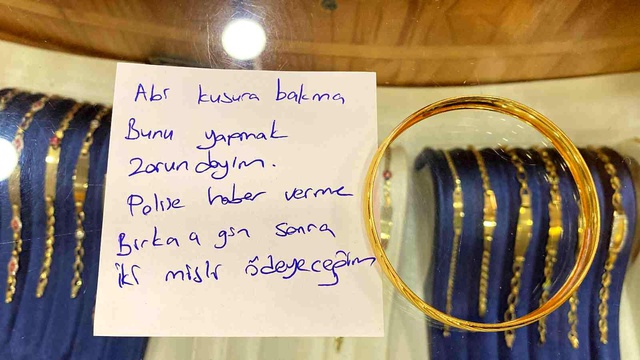 Abi kusura bakma
Bunu yapmak
zorundayım.
Polise haber verme
Birkaç gün sonra
iki misli ödeyeceğim